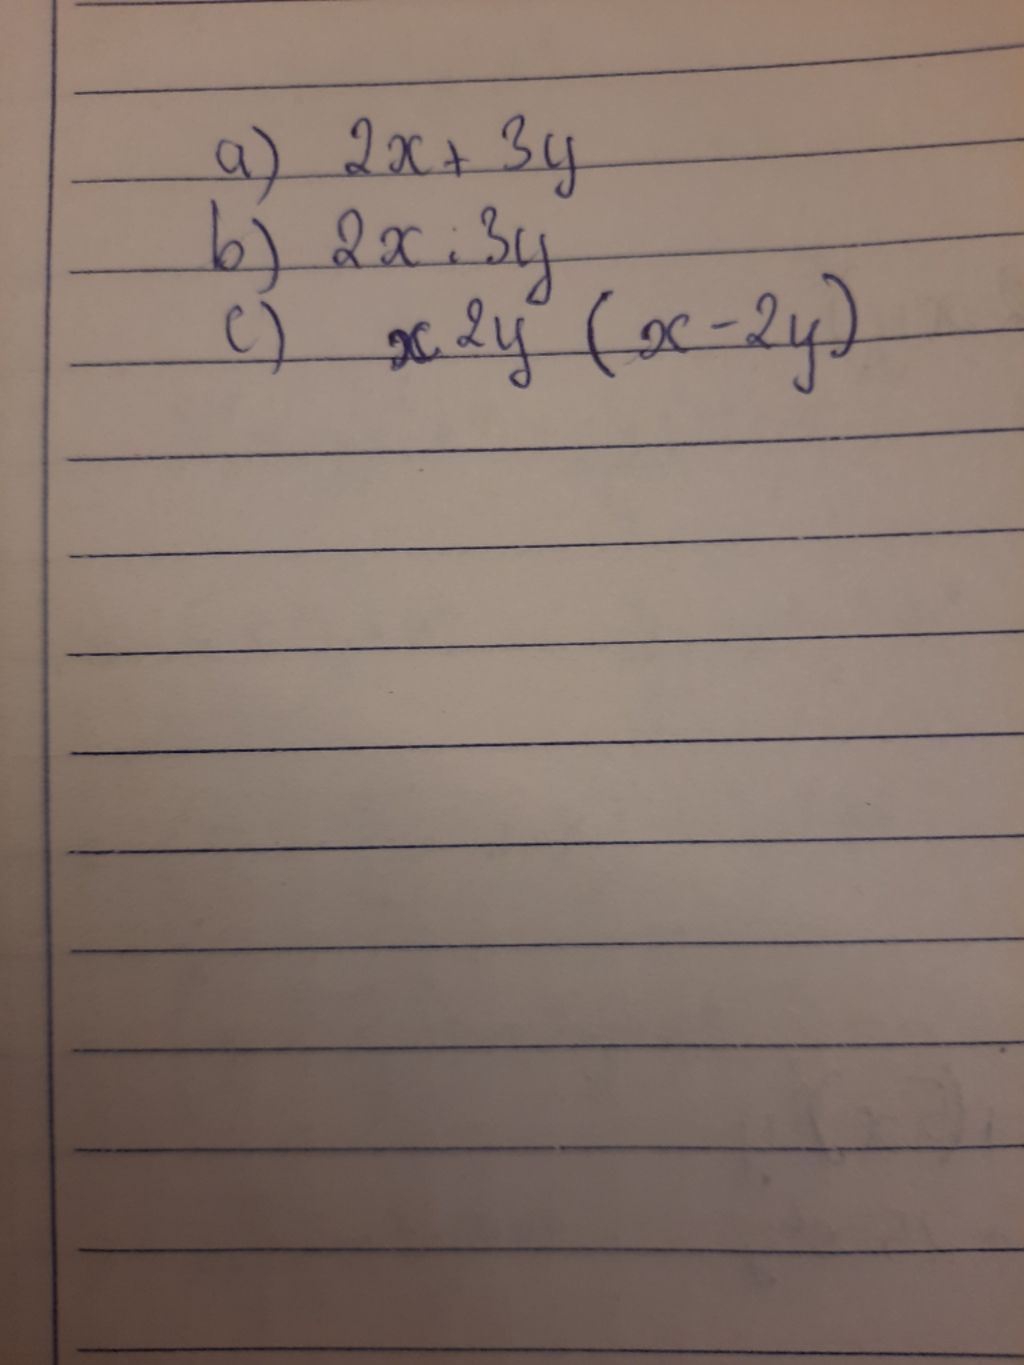 a) 2x + 3y
b) 2x : 3y
c) x 2y (x - 2y)